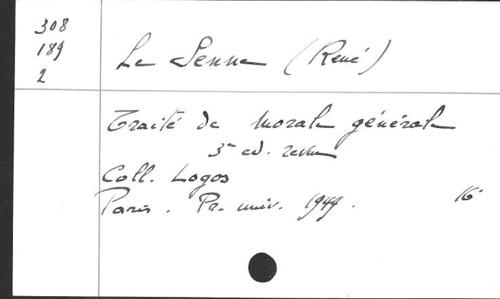 308
189
2
Le Senne (René)
Traité de morale générale
3e ed. revue
Coll. Logos
Paris. Pr. univ. 1949. 16°